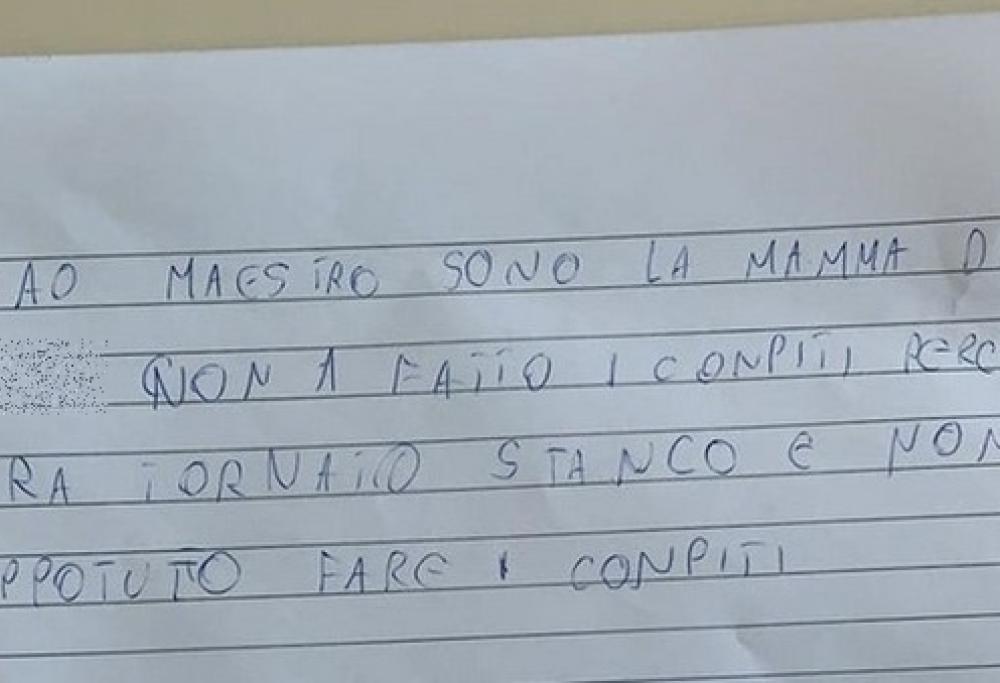 AO MAESTRO SONO LA MAMMA D
NON A FATTO I CONPITI PERC
RA TORNATO STANCO E NON
PPOTUTO FARE I CONPITI